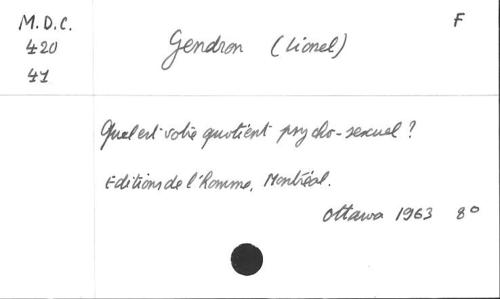 M.D.C.
420
41
F
Gendron (Lionel)
Quel est votre quotient psycho-sexuel ?
Editions de l'homme, Montréal.
Ottawa 1963 8°